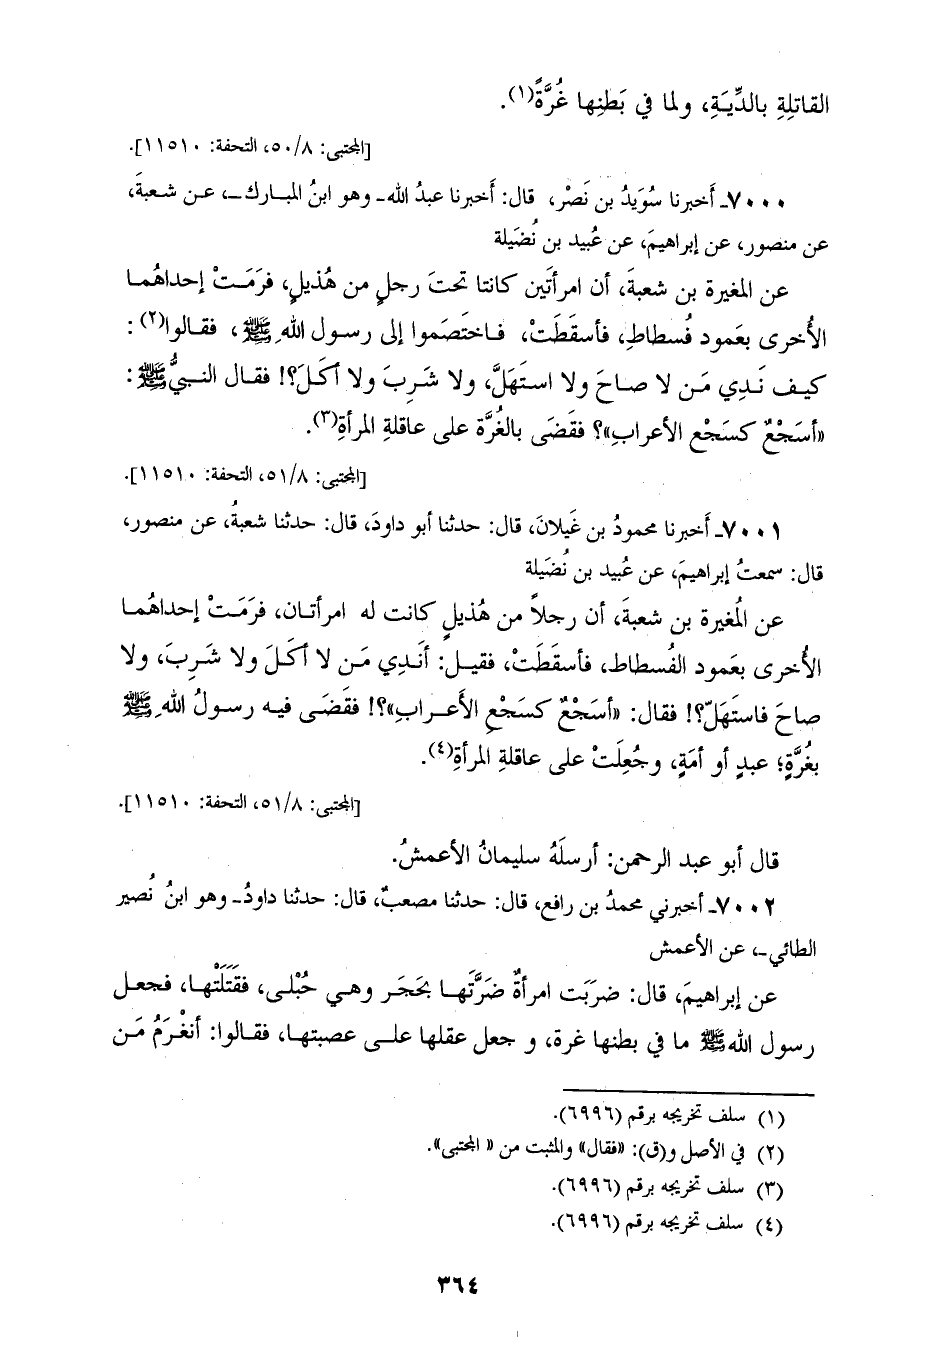 القاتلِةِ بالدِّيَةِ، ولما في بَطنِها غُرَّةً(١).
[المجتبى: ٥٠/٨، التحفة: ١١٥١٠].
٧٠٠٠ـ أَخبرنا سُوَيدُ بن نَصْر، قال: أَخبرنا عبدُ الله ـ وهو ابنُ المبارك ـ، عـن شـعبةَ،
عن منصور، عن إبراهيمَ، عن عُبيد بن نُضَيلة
عن المغيرة بن شعبةَ، أن امرأتَين كانتا تحتَ رجلٍ من هُذيلٍ، فرَمَـتْ إحداهُمـا
الأُخرى بعَمود فُسطاطٍ، فأسقَطَتْ، فـاختَصَموا إلى رسـول اللهِ ﷺ، فقـالوا(٢):
كيـف نَـدِي مَـن لا صـاحَ ولا استَهَلَّ، ولا شَـرِبَ ولا أكَـلَ؟! فقـال النـبيُّ ﷺ:
«أسَـجْعٌ كسَـجْع الأعـرابِ»؟ فقَضَى بالغُرَّة على عاقلةِ المرأةِ(٣).
[المجتبى: ٥١/٨، التحفة: ١١٥١٠].
٧٠٠١ـ أَخبرنا محمودُ بن غَيلانَ، قال: حدثنا أبو داودَ، قال: حدثنا شعبةُ، عن منصور،
قال: سمعتُ إبراهيمَ، عن عُبيد بن نُضَيلة
عن المُغيرة بن شعبةَ، أن رجلاً من هُذيلٍ كانت له امرأتـان، فرَمَـتْ إحداهُمـا
الأُخرى بعَمود الفُسطاط، فأسقَطَتْ، فقيـل: أنَـدِي مَـن لا أكَـلَ ولا شَـرِبَ، ولا
صاحَ فاستَهَلّ؟! فقال: «أسَجْعٌ كسَجْعِ الأَعـرابِ»؟! فقَضَـى فيـه رسـولُ اللهِ ﷺ
بغُرَّةٍ؛ عبدٍ أو أمَةٍ، وجُعِلَتْ على عاقلةِ المرأةِ(٤).
[المجتبى: ٥١/٨، التحفة: ١١٥١٠].
قال أبو عبد الرحمن: أرسلَهُ سليمانُ الأعمشُ.
٧٠٠٢ـ أخبرني محمدُ بن رافع، قال: حدثنا مصعبٌ، قال: حدثنا داودُ ـ وهو ابنُ نُصير
الطائي ـ، عن الأعمش
عن إبراهيمَ، قال: ضرَبَت امرأةٌ ضَرَّتَهـا بحَجَـر وهـي حُبْـلى، فقَتَلَتْهـا، فجعـل
رسول الله ﷺ ما في بطنها غرة، و جعل عقلها علـى عصبتهـا، فقـالوا: أنغْـرَمُ مَـن
(١) سلف تخريجه برقم (٦٩٩٦).
(٢) في الأصل و(ق): «فقال» والمثبت من «المجتبى».
(٣) سلف تخريجه برقم (٦٩٩٦).
(٤) سلف تخريجه برقم (٦٩٩٦).
٣٦٤